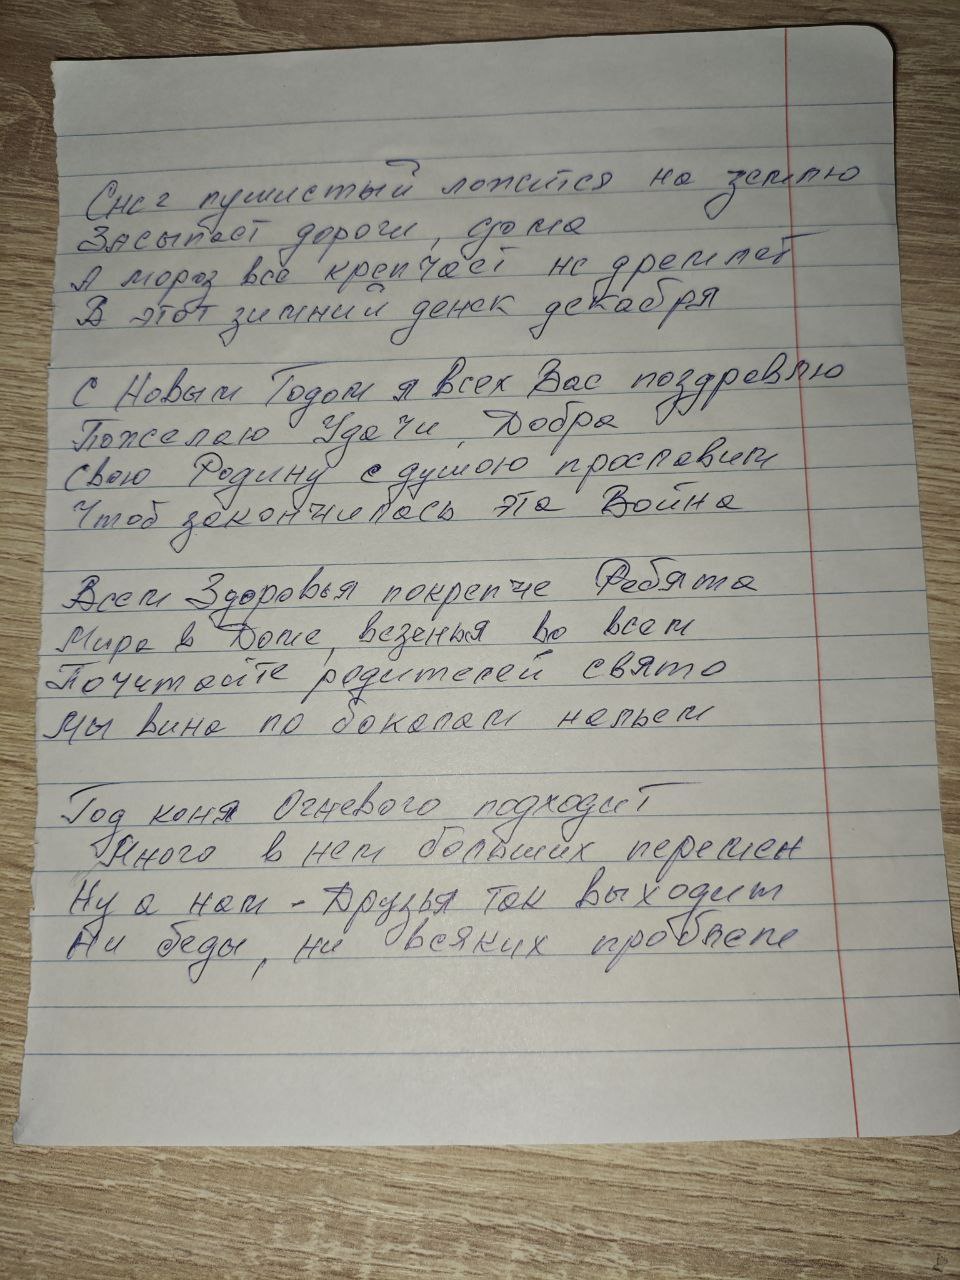 Снег пушистый ложится на землю
Засыпает дороги, дома
А мороз все крепчает не дремлет
В этот зимний денек декабря
С Новым Годом я всех Вас поздравлю
Пожелаю Удачи, Добра
Свою Родину с душою прославим
Чтоб закончилась эта Война
Всем Здоровья покрепче Ребята
Мира в Доме, везенья во всем
Почитайте родителей свято
Мы вина по бокалам нальем
Год коня Огневого подходит
Много в нем больших перемен
Ну а нам - Друзья так выходит
Ни беды, ни всяких проблем